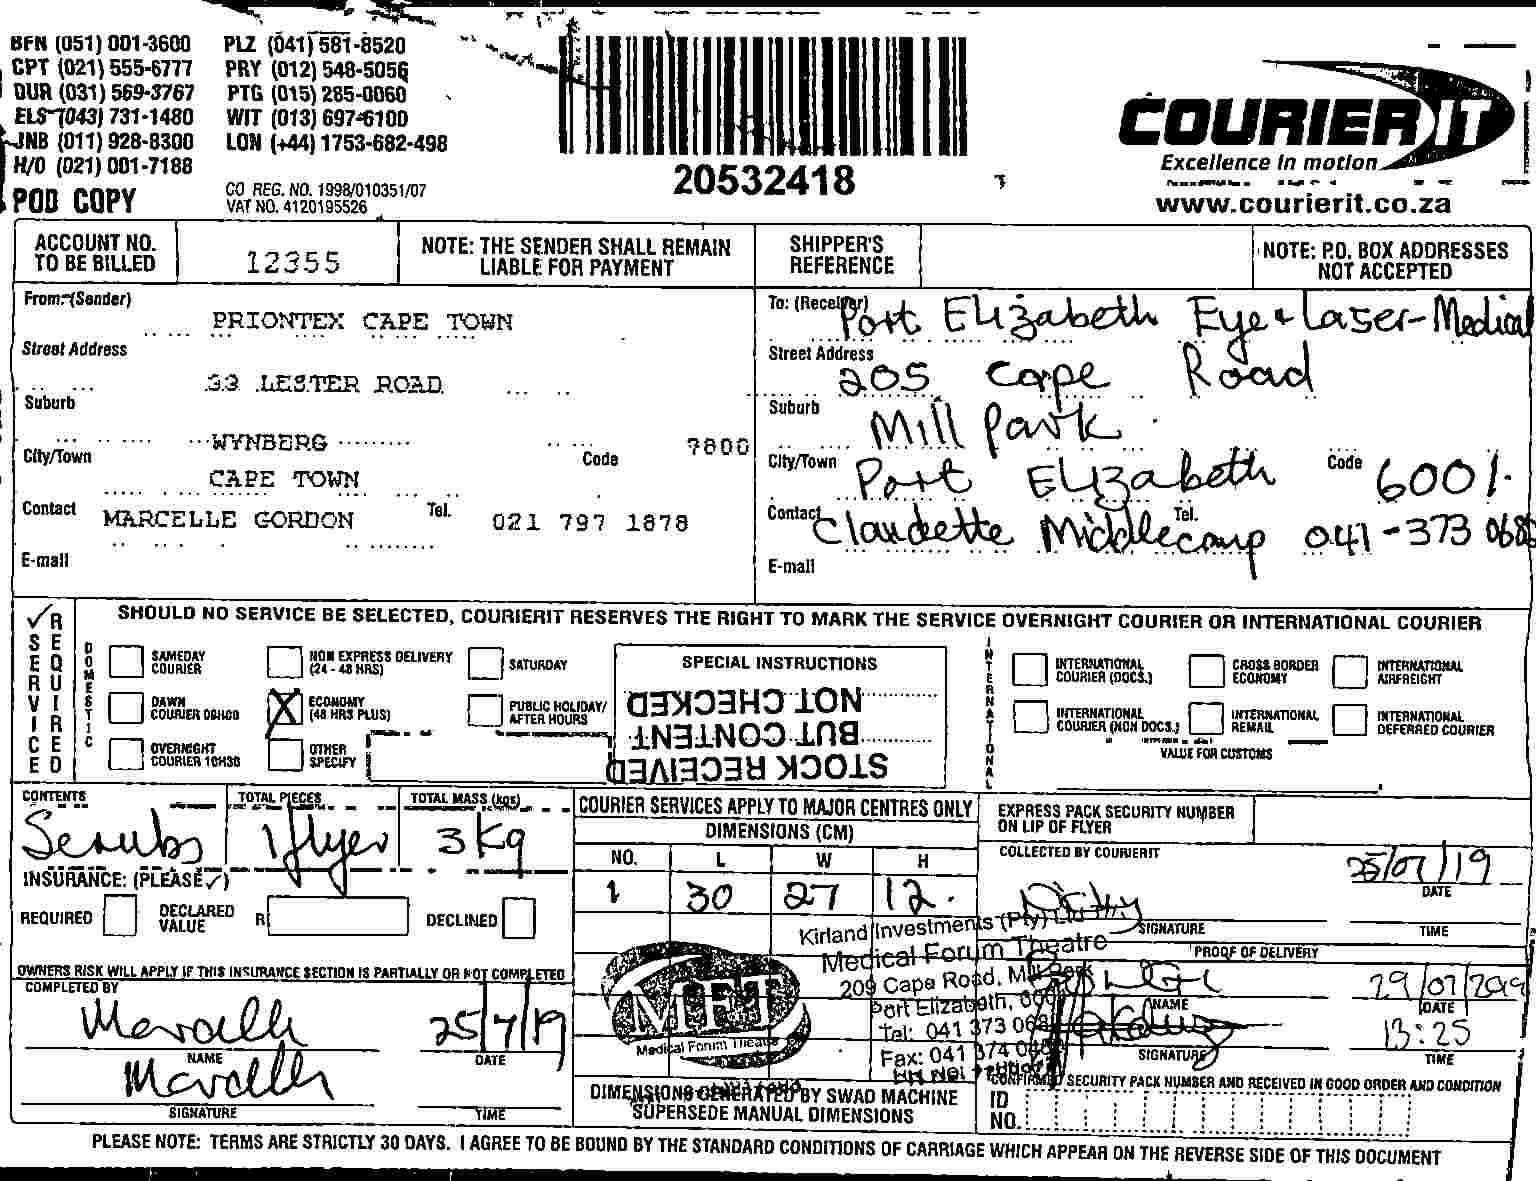 BFN (051) 001-3600 PLZ (041) 581-8520
CPT (021) 555-6777 PRY (012) 548-5056
DUR (031) 569-3767 PTG (015) 285-0060
ELS (043) 731-1480 WIT (013) 697-6100
JNB (011) 928-8300 LON (+44) 1753-682-498
H/O (021) 001-7188
POD COPY
CO REG. NO. 1998/010351/07
VAT NO. 4120195526
20532418
COURIER IT
Excellence in motion
www.courierit.co.za
ACCOUNT NO. TO BE BILLED 12355
NOTE: THE SENDER SHALL REMAIN LIABLE FOR PAYMENT
SHIPPER'S REFERENCE
NOTE: P.O. BOX ADDRESSES NOT ACCEPTED
From: (Sender)
PRIONTEX CAPE TOWN
Street Address
33 LESTER ROAD
Suburb
WYNBERG
City/Town
Code 7800
CAPE TOWN
Contact MARCELLE GORDON Tel. 021 797 1878
E-mail
To: (Receiver) Port Elizabeth Eye & Laser-Medical
Street Address 205 Cape Road
Suburb Mill Park
City/Town Port Elizabeth Code 6001
Contact Claudette Middlecamp Tel. 041-373 0686
E-mail
SERVICE REQUIRED
SHOULD NO SERVICE BE SELECTED, COURIERIT RESERVES THE RIGHT TO MARK THE SERVICE OVERNIGHT COURIER OR INTERNATIONAL COURIER
DOMESTIC
SAMEDAY COURIER
NON EXPRESS DELIVERY (24 - 48 HRS)
SATURDAY
DAWN COURIER 09H00
X ECONOMY (48 HRS PLUS)
PUBLIC HOLIDAY/ AFTER HOURS
OVERNIGHT COURIER 10H30
OTHER SPECIFY
SPECIAL INSTRUCTIONS
STOCK RECEIVED
BUT CONTENT
NOT CHECKED
INTERNATIONAL
INTERNATIONAL COURIER (DOCS.)
CROSS BORDER ECONOMY
INTERNATIONAL AIRFREIGHT
INTERNATIONAL COURIER (NON DOCS.)
INTERNATIONAL REMAIL
INTERNATIONAL DEFERRED COURIER
VALUE FOR CUSTOMS
CONTENTS TOTAL PIECES TOTAL MASS (kgs)
Scrubs 1 flyer 3 Kg
INSURANCE: (PLEASE ✓)
REQUIRED DECLARED VALUE R DECLINED
OWNERS RISK WILL APPLY IF THIS INSURANCE SECTION IS PARTIALLY OR NOT COMPLETED
COMPLETED BY
Marcelle 25/7/19
NAME DATE
Marcelle
SIGNATURE TIME
COURIER SERVICES APPLY TO MAJOR CENTRES ONLY
DIMENSIONS (CM)
NO. L W H
1 30 27 12
Kirland Investments (Pty) Ltd
Medical Forum Theatre
209 Cape Road, Mill Park
Port Elizabeth,
Tel: 041 373
Fax: 041 374
MFT
Medical Forum Theatre
DIMENSIONS GENERATED BY SWAD MACHINE SUPERSEDE MANUAL DIMENSIONS
EXPRESS PACK SECURITY NUMBER ON LIP OF FLYER
COLLECTED BY COURIERIT
25/07/19
DATE
SIGNATURE TIME
PROOF OF DELIVERY
29/07/2019
NAME DATE
13:25
SIGNATURE TIME
CONFIRMED SECURITY PACK NUMBER AND RECEIVED IN GOOD ORDER AND CONDITION
ID NO.
PLEASE NOTE: TERMS ARE STRICTLY 30 DAYS. I AGREE TO BE BOUND BY THE STANDARD CONDITIONS OF CARRIAGE WHICH APPEAR ON THE REVERSE SIDE OF THIS DOCUMENT